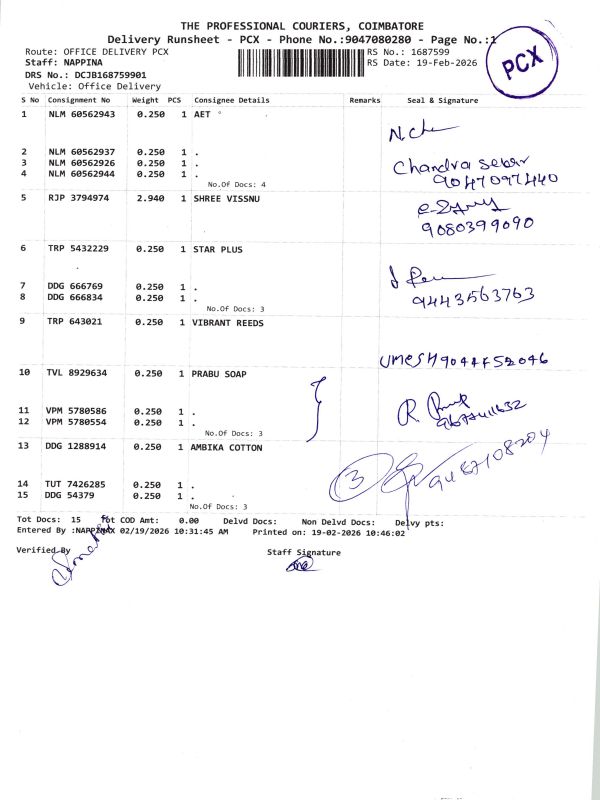 THE PROFESSIONAL COURIERS, COIMBATORE
Delivery Runsheet - PCX - Phone No.:9047080280 - Page No.:1
Route: OFFICE DELIVERY PCX RS No.: 1687599
Staff: NAPPINA RS Date: 19-Feb-2026
PCX
DRS No.: DCJB168759901
Vehicle: Office Delivery
S No Consignment No Weight PCS Consignee Details Remarks Seal & Signature
1 NLM 60562943 0.250 1 AET
2 NLM 60562937 0.250 1 .
3 NLM 60562926 0.250 1 .
Chandra Sekar
4 NLM 60562944 0.250 1 .
9047097440
No.Of Docs: 4
5 RJP 3794974 2.940 1 SHREE VISSNU
9080399090
6 TRP 5432229 0.250 1 STAR PLUS
7 DDG 666769 0.250 1 .
8 DDG 666834 0.250 1 .
9443563763
No.Of Docs: 3
9 TRP 643021 0.250 1 VIBRANT REEDS
UMESH
10 TVL 8929634 0.250 1 PRABU SOAP
11 VPM 5780586 0.250 1 .
12 VPM 5780554 0.250 1 .
No.Of Docs: 3
13 DDG 1288914 0.250 1 AMBIKA COTTON
3 9487108204
14 TUT 7426285 0.250 1 .
15 DDG 54379 0.250 1 .
No.Of Docs: 3
Tot Docs: 15 Tot COD Amt: 0.00 Delvd Docs: Non Delvd Docs: Delvy pts:
Entered By :NAPPINAX 02/19/2026 10:31:45 AM Printed on: 19-02-2026 10:46:02
Verified By Staff Signature